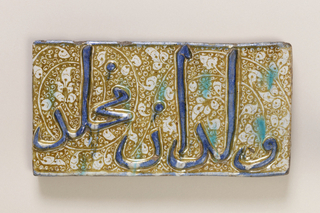 ولدان مخلد